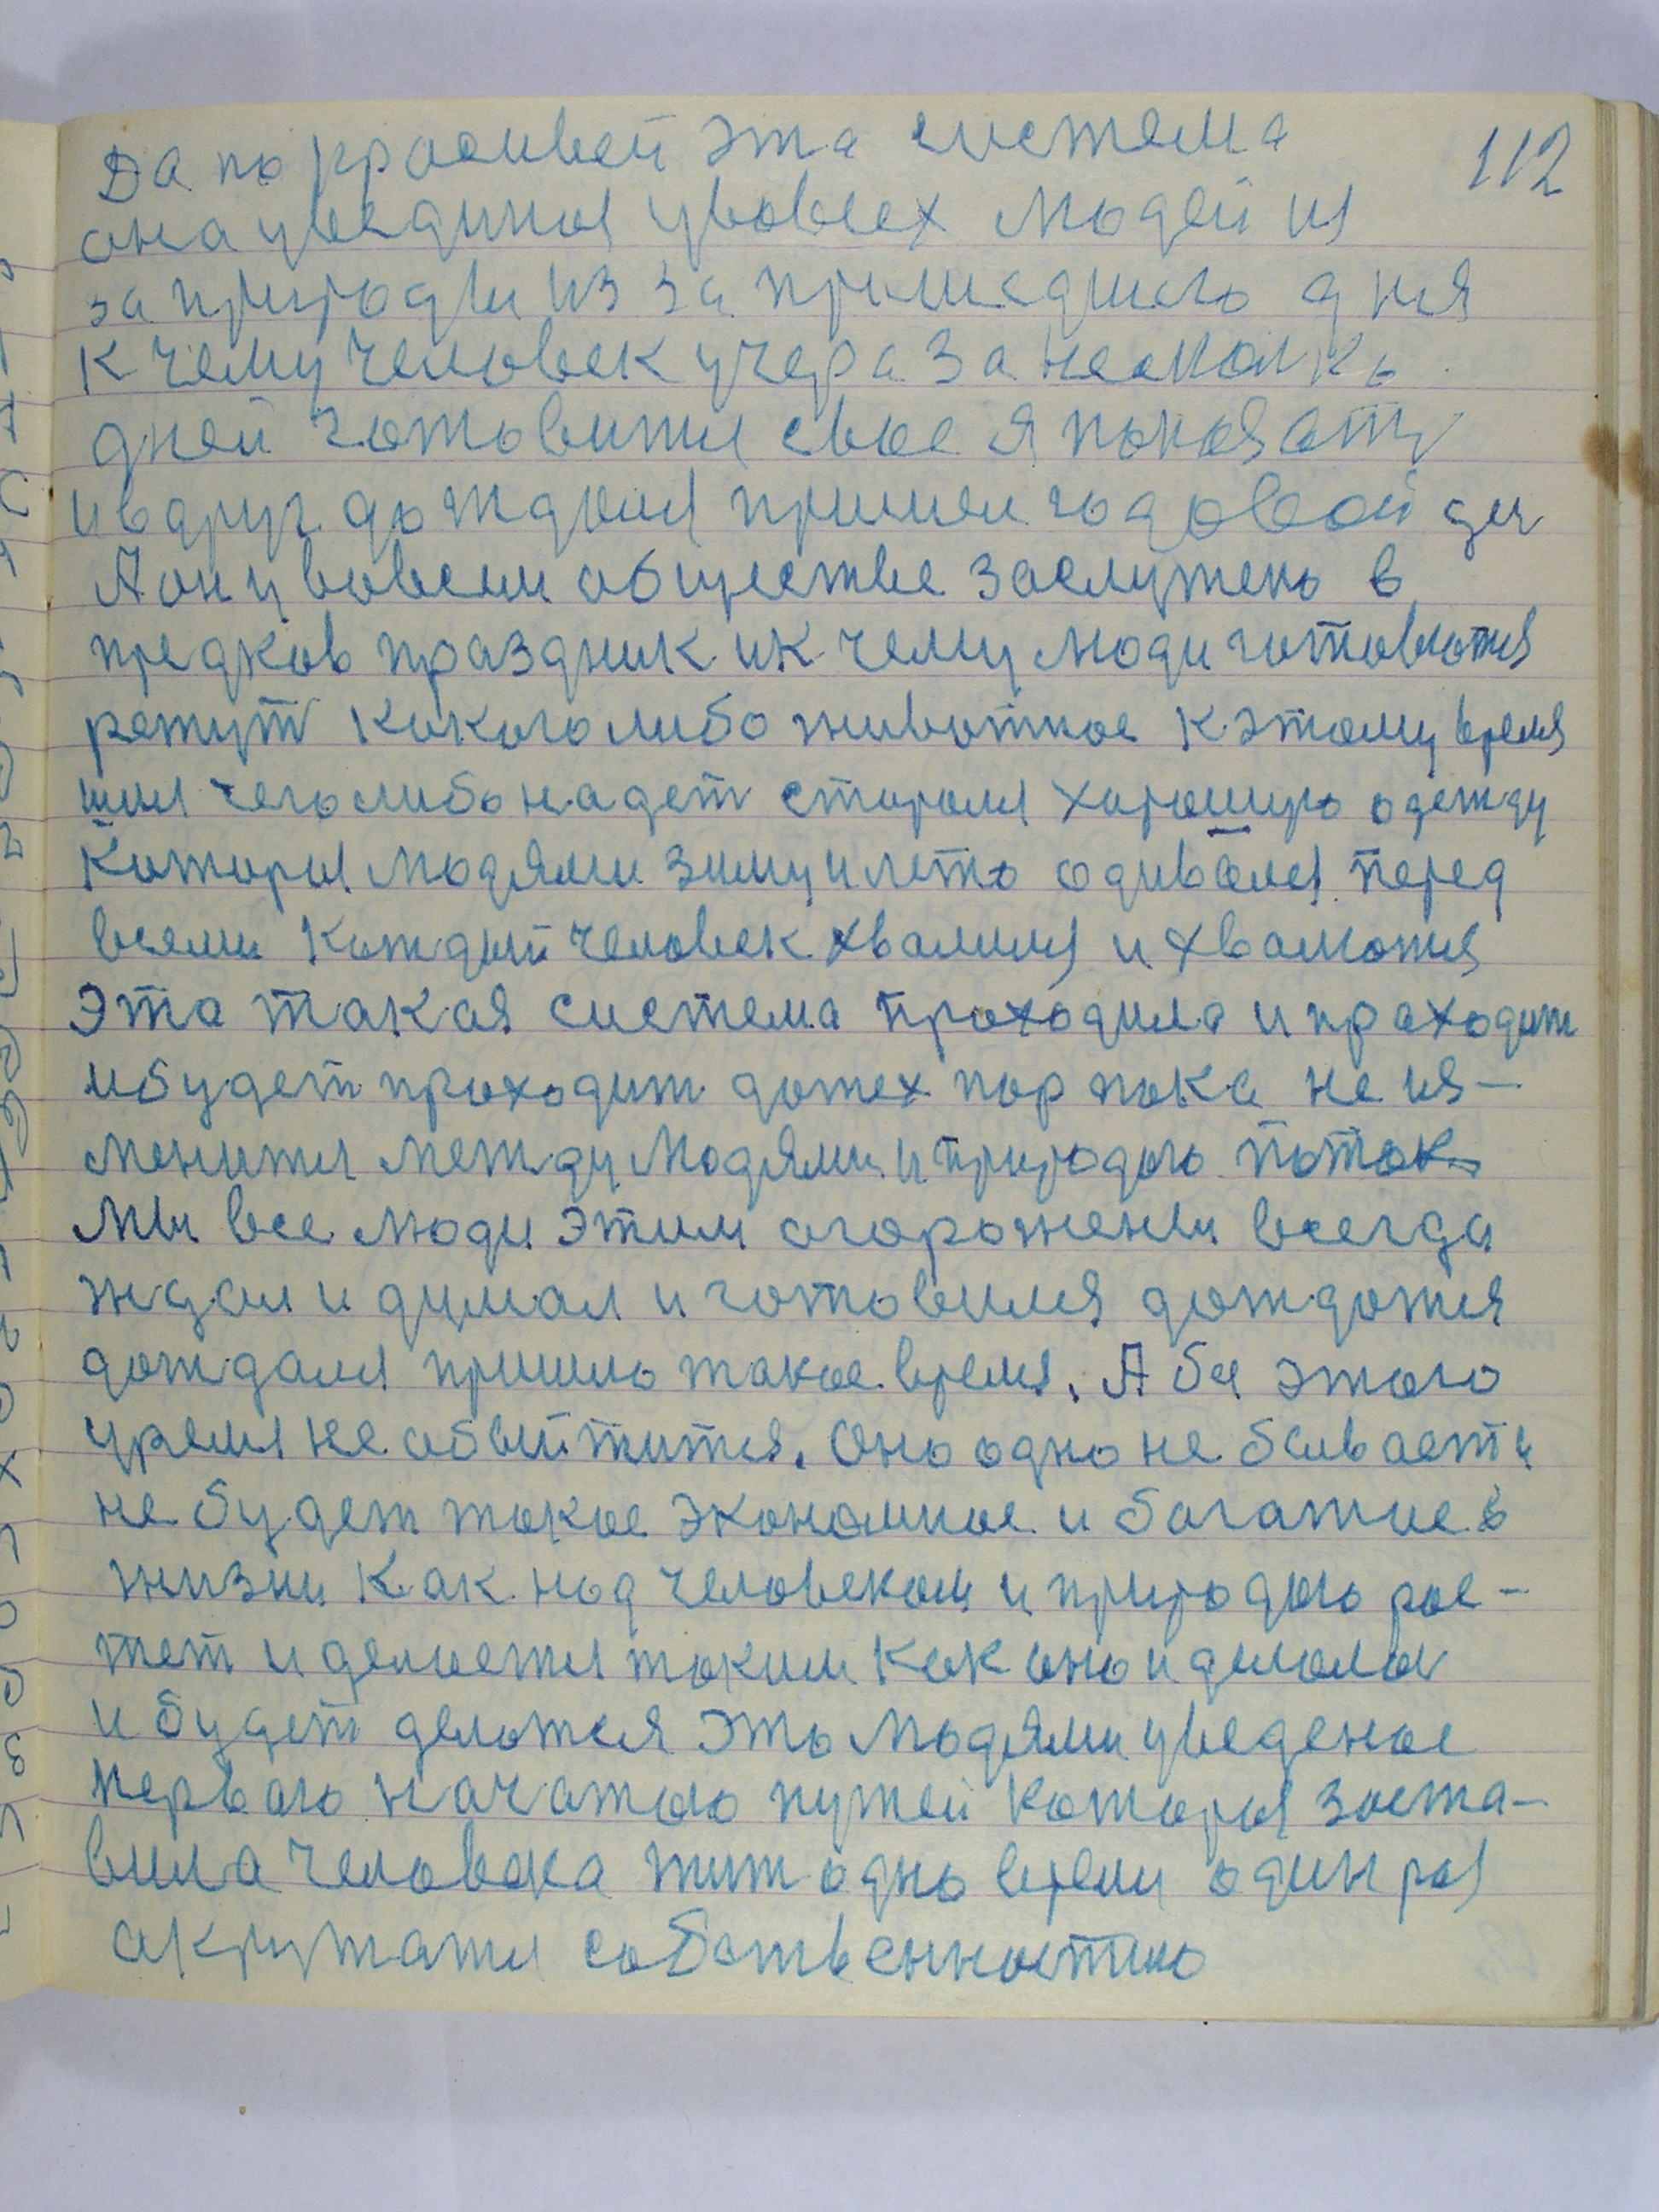 112
Да по красивей эта система
она увединая увовсех людей из
за природы из за пришедшего дня
к чему человек учера за несколко
дней готовитися свое я показать
и вдруг дождался пришел годовой
А он у вовсем обществе заслужено в
предков праздник и к чему люди готовются
режут кокого либо животное к этому время
шил чего либо надеть старался харошую одежду
Которыя людями зиму и лето одивался перед
всеми Каждый человек хвалился и хвалются
Эта такая система проходила и праходит
и будет проходит дотех пор пока не из-
менится между людями и природою поток
Мы все люди этим огорожены всегда
ждал и думал и готовился дождатся
дождался пришло такое время. А без этого
уремя не обойтится. Оно одно не бывает и
не будет такое экономное и богатое в
жизни Как над человеком и природою рос-
тет и делается таким как оно и делолся
и будет делатся это людями уведеное
первого начатою путей которыя заста-
вила человека жит одно время один раз
акружатся собственностию